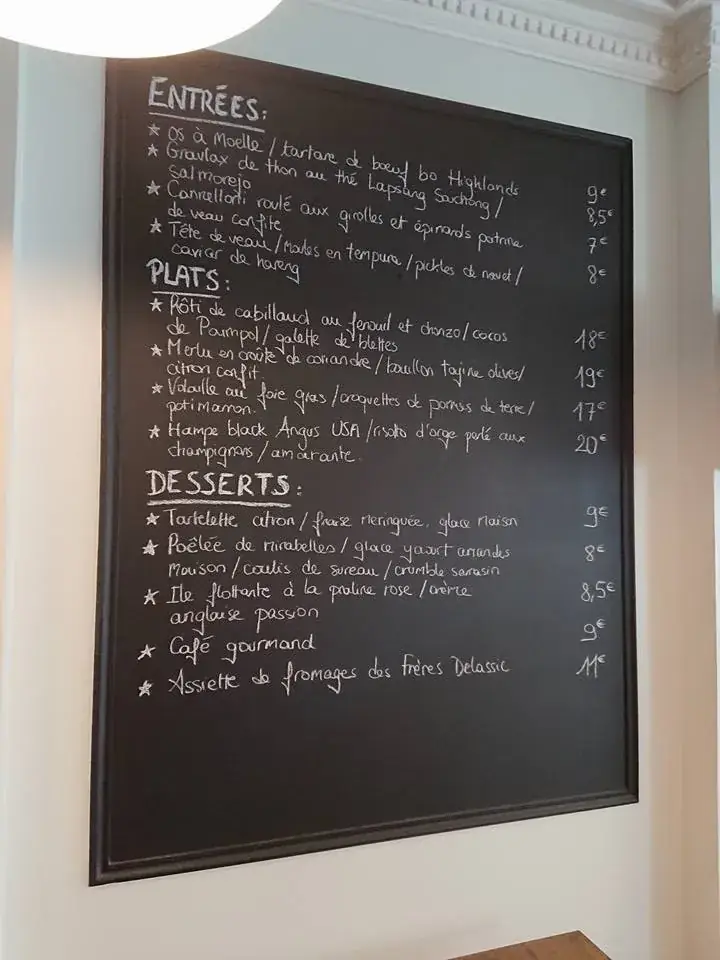 ENTRÉES:
★ Os à Moelle / tartare de boeuf bo Highlands 9€
★ Gravlax de thon au thé Lapsang Souchong / 8,5€
salmorejo
★ Cannelloni roulé aux girolles et épinards poitrine 7€
de veau confite
★ Tête de veau / Moules en tempura / pickles de navet / 8€
caviar de hareng
PLATS:
★ Rôti de cabillaud au fenouil et chorizo / cocos 18€
de Paimpol / galette de blettes
★ Merlu en croûte de coriandre / bouillon tajine olives / 19€
citron confit
★ Volaille au foie gras / croquettes de pommes de terre / 17€
potimarron.
★ Hampe black Angus USA / risotto d'orge perlé aux 20€
champignons / amarante.
DESSERTS:
★ Tartelette citron / fraise meringuée, glace Maison 9€
★ Poêlée de mirabelles / glace yaourt amandes 8€
Maison / coulis de sureau / crumble sarrasin
★ Ile flottante à la praline rose / crème 8,5€
anglaise passion
★ Café gourmand 9€
★ Assiette de fromages des Frères Delassic 11€